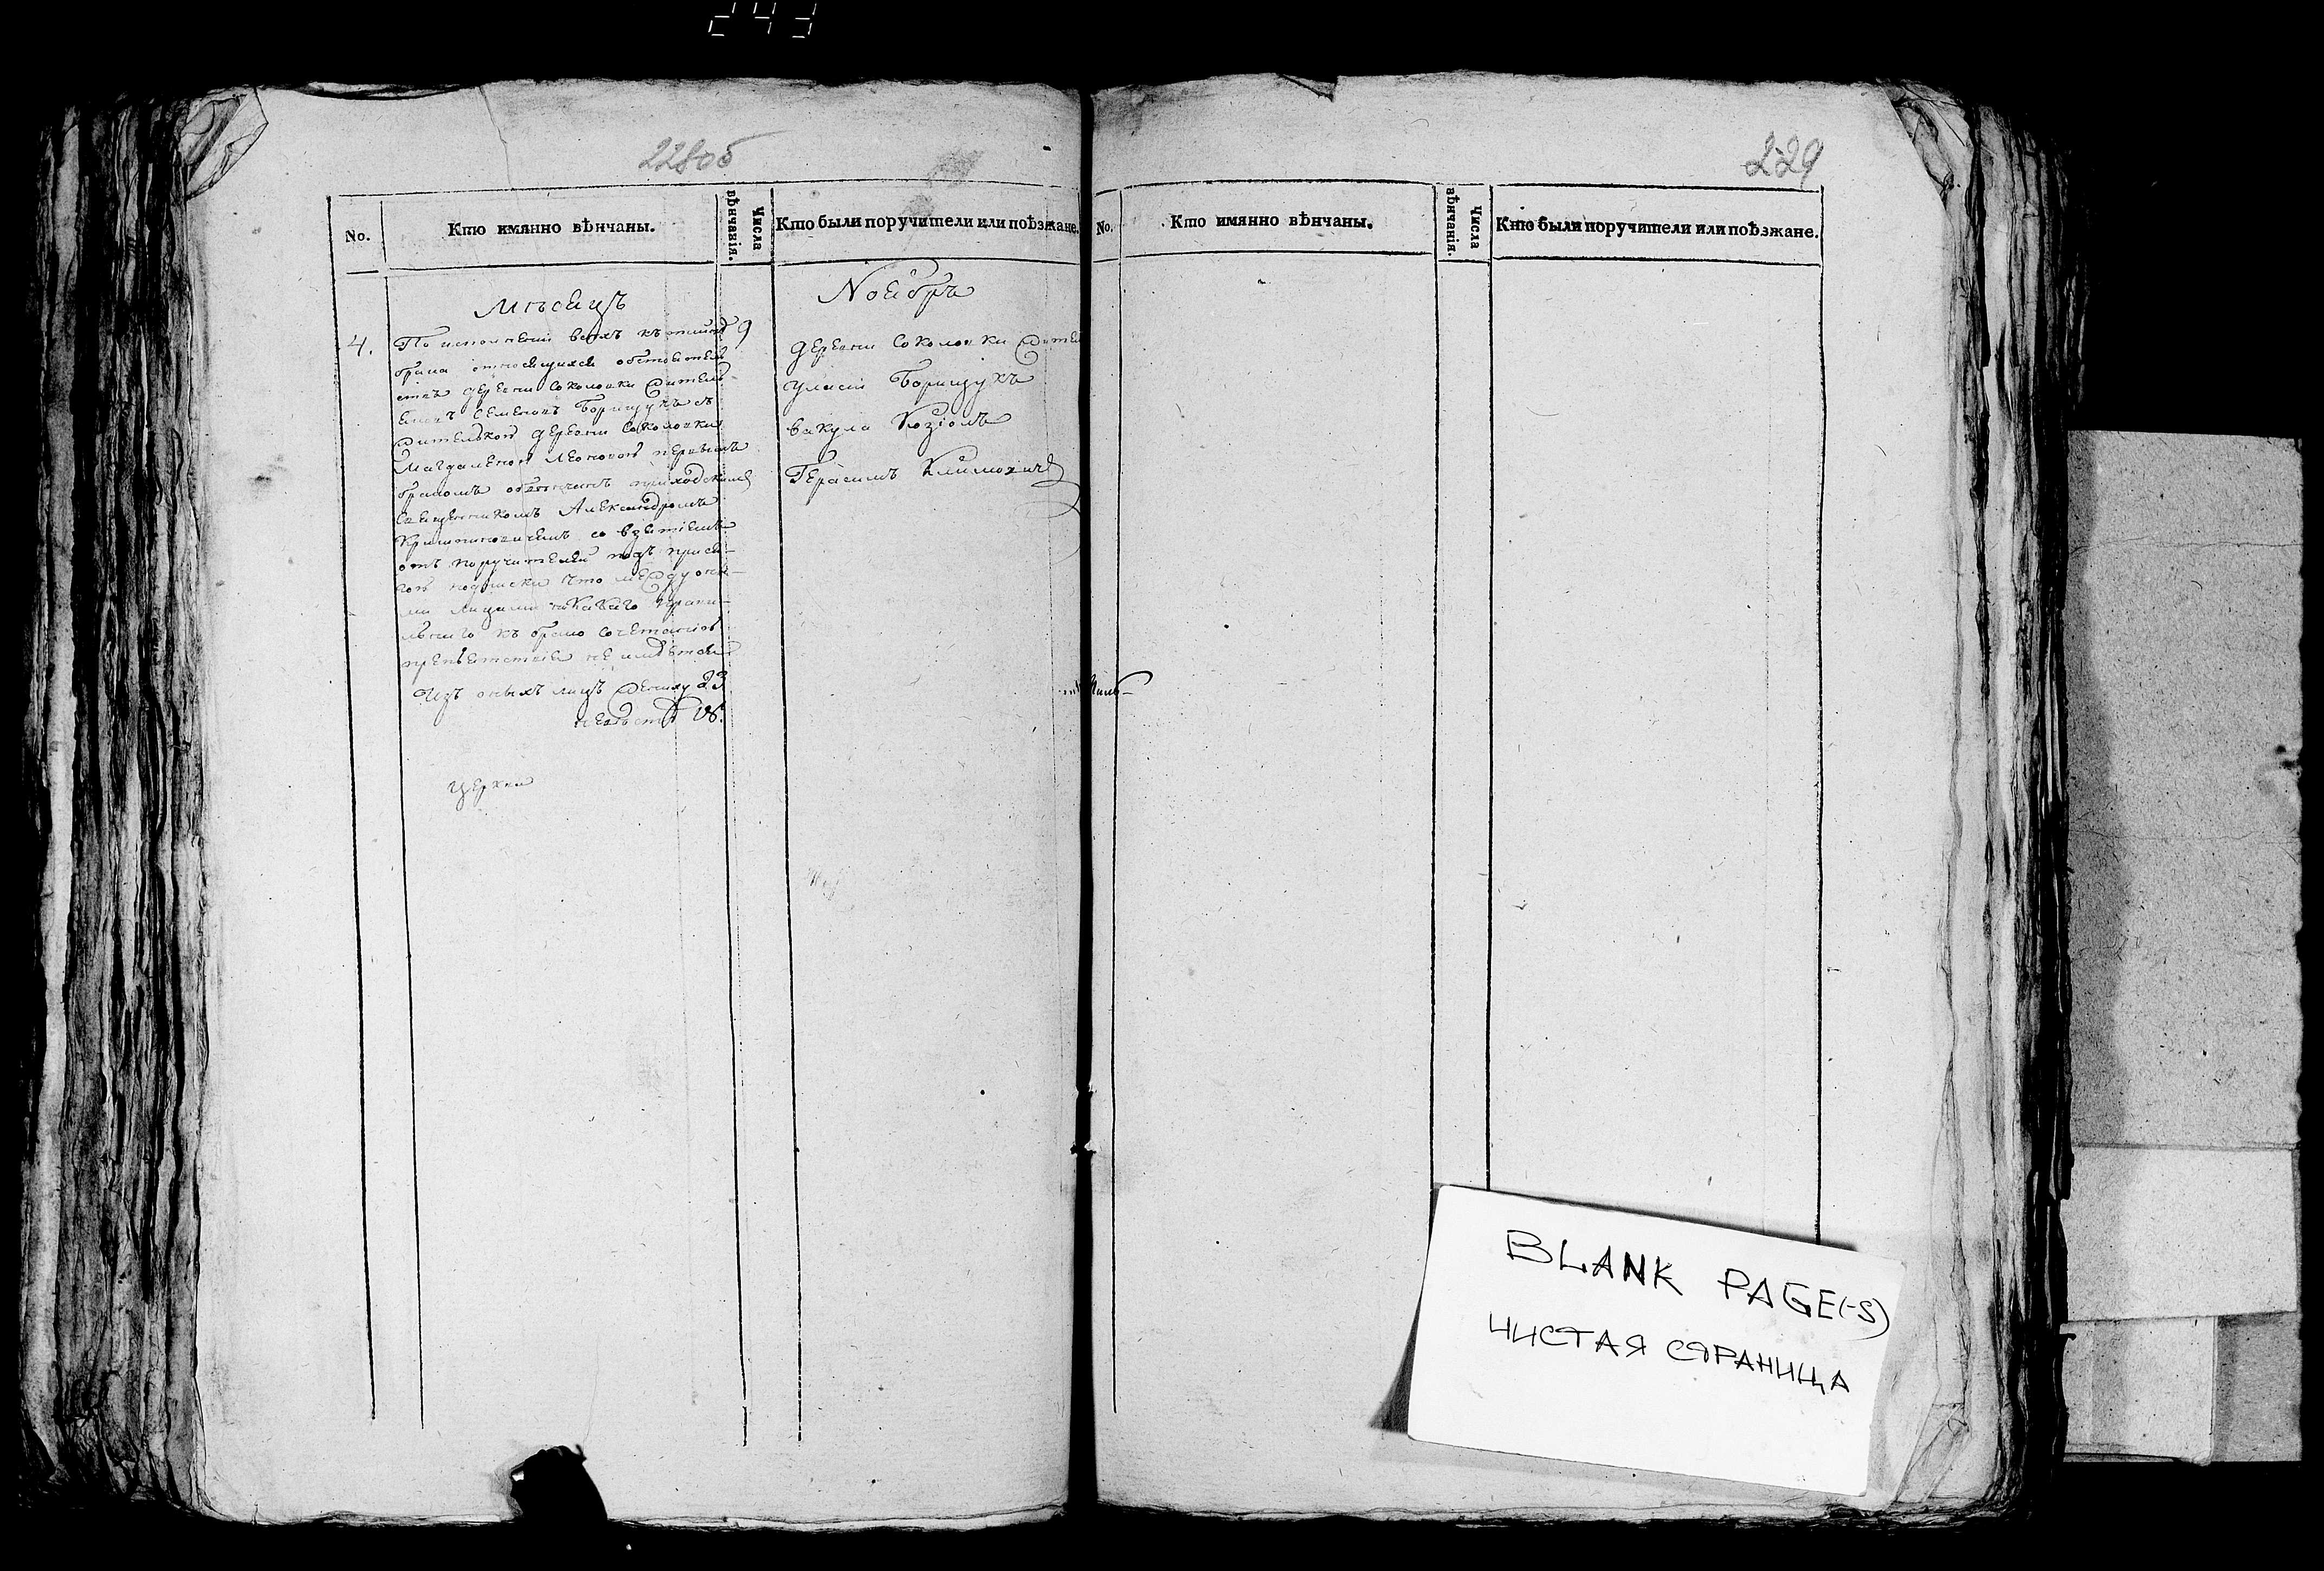 243
228об
No.
Кто имянно вѣнчаны.
Числа вѣнчанія.
Кто были поручители или поѣзжане.
Мѣсяцъ
Ноябръ
4.
По исполнении всехъ къ
9
брака относящихся обстоятель
ствъ деревни Соколовки житель
Семеновъ Борищукъ съ
жителькою деревни Соколовки
Магдаленою первымъ
бракомъ приходскимъ
Священникомъ Александромъ
со взятіемъ
отъ поручителей подъ прися-
гою подписки что между оны-
ми лицами никакаго прави-
льнаго къ брако сочетанію
препятствія не имѣется
Изъ оныхъ лицъ жениху 23
невѣсте
церкви
деревни Соколовки жители
Уласій Борищукъ
Вакула Козіолъ
Герасимъ Климович
229
No.
Кто имянно вѣнчаны.
Числа вѣнчанія.
Кто были поручители или поѣзжане.
BLANK PAGE(-S)
ЧИСТАЯ СТРАНИЦА